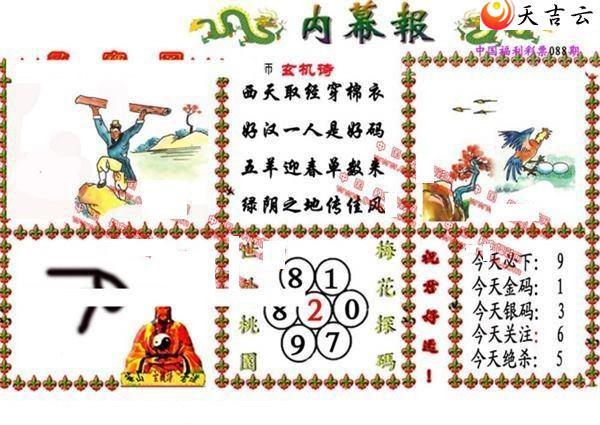 内幕報
天吉云
中国福利彩票088期
币 玄机诗
西天取经穿棉衣
好汉一人是好码
五羊迎春单数来
绿阴之地传佳风
世外桃園
8 1
8 2 0
9 7
梅花探碼
祝君好运!
今天必下: 9
今天金码: 1
今天银码: 3
今天关注: 6
今天绝杀: 5